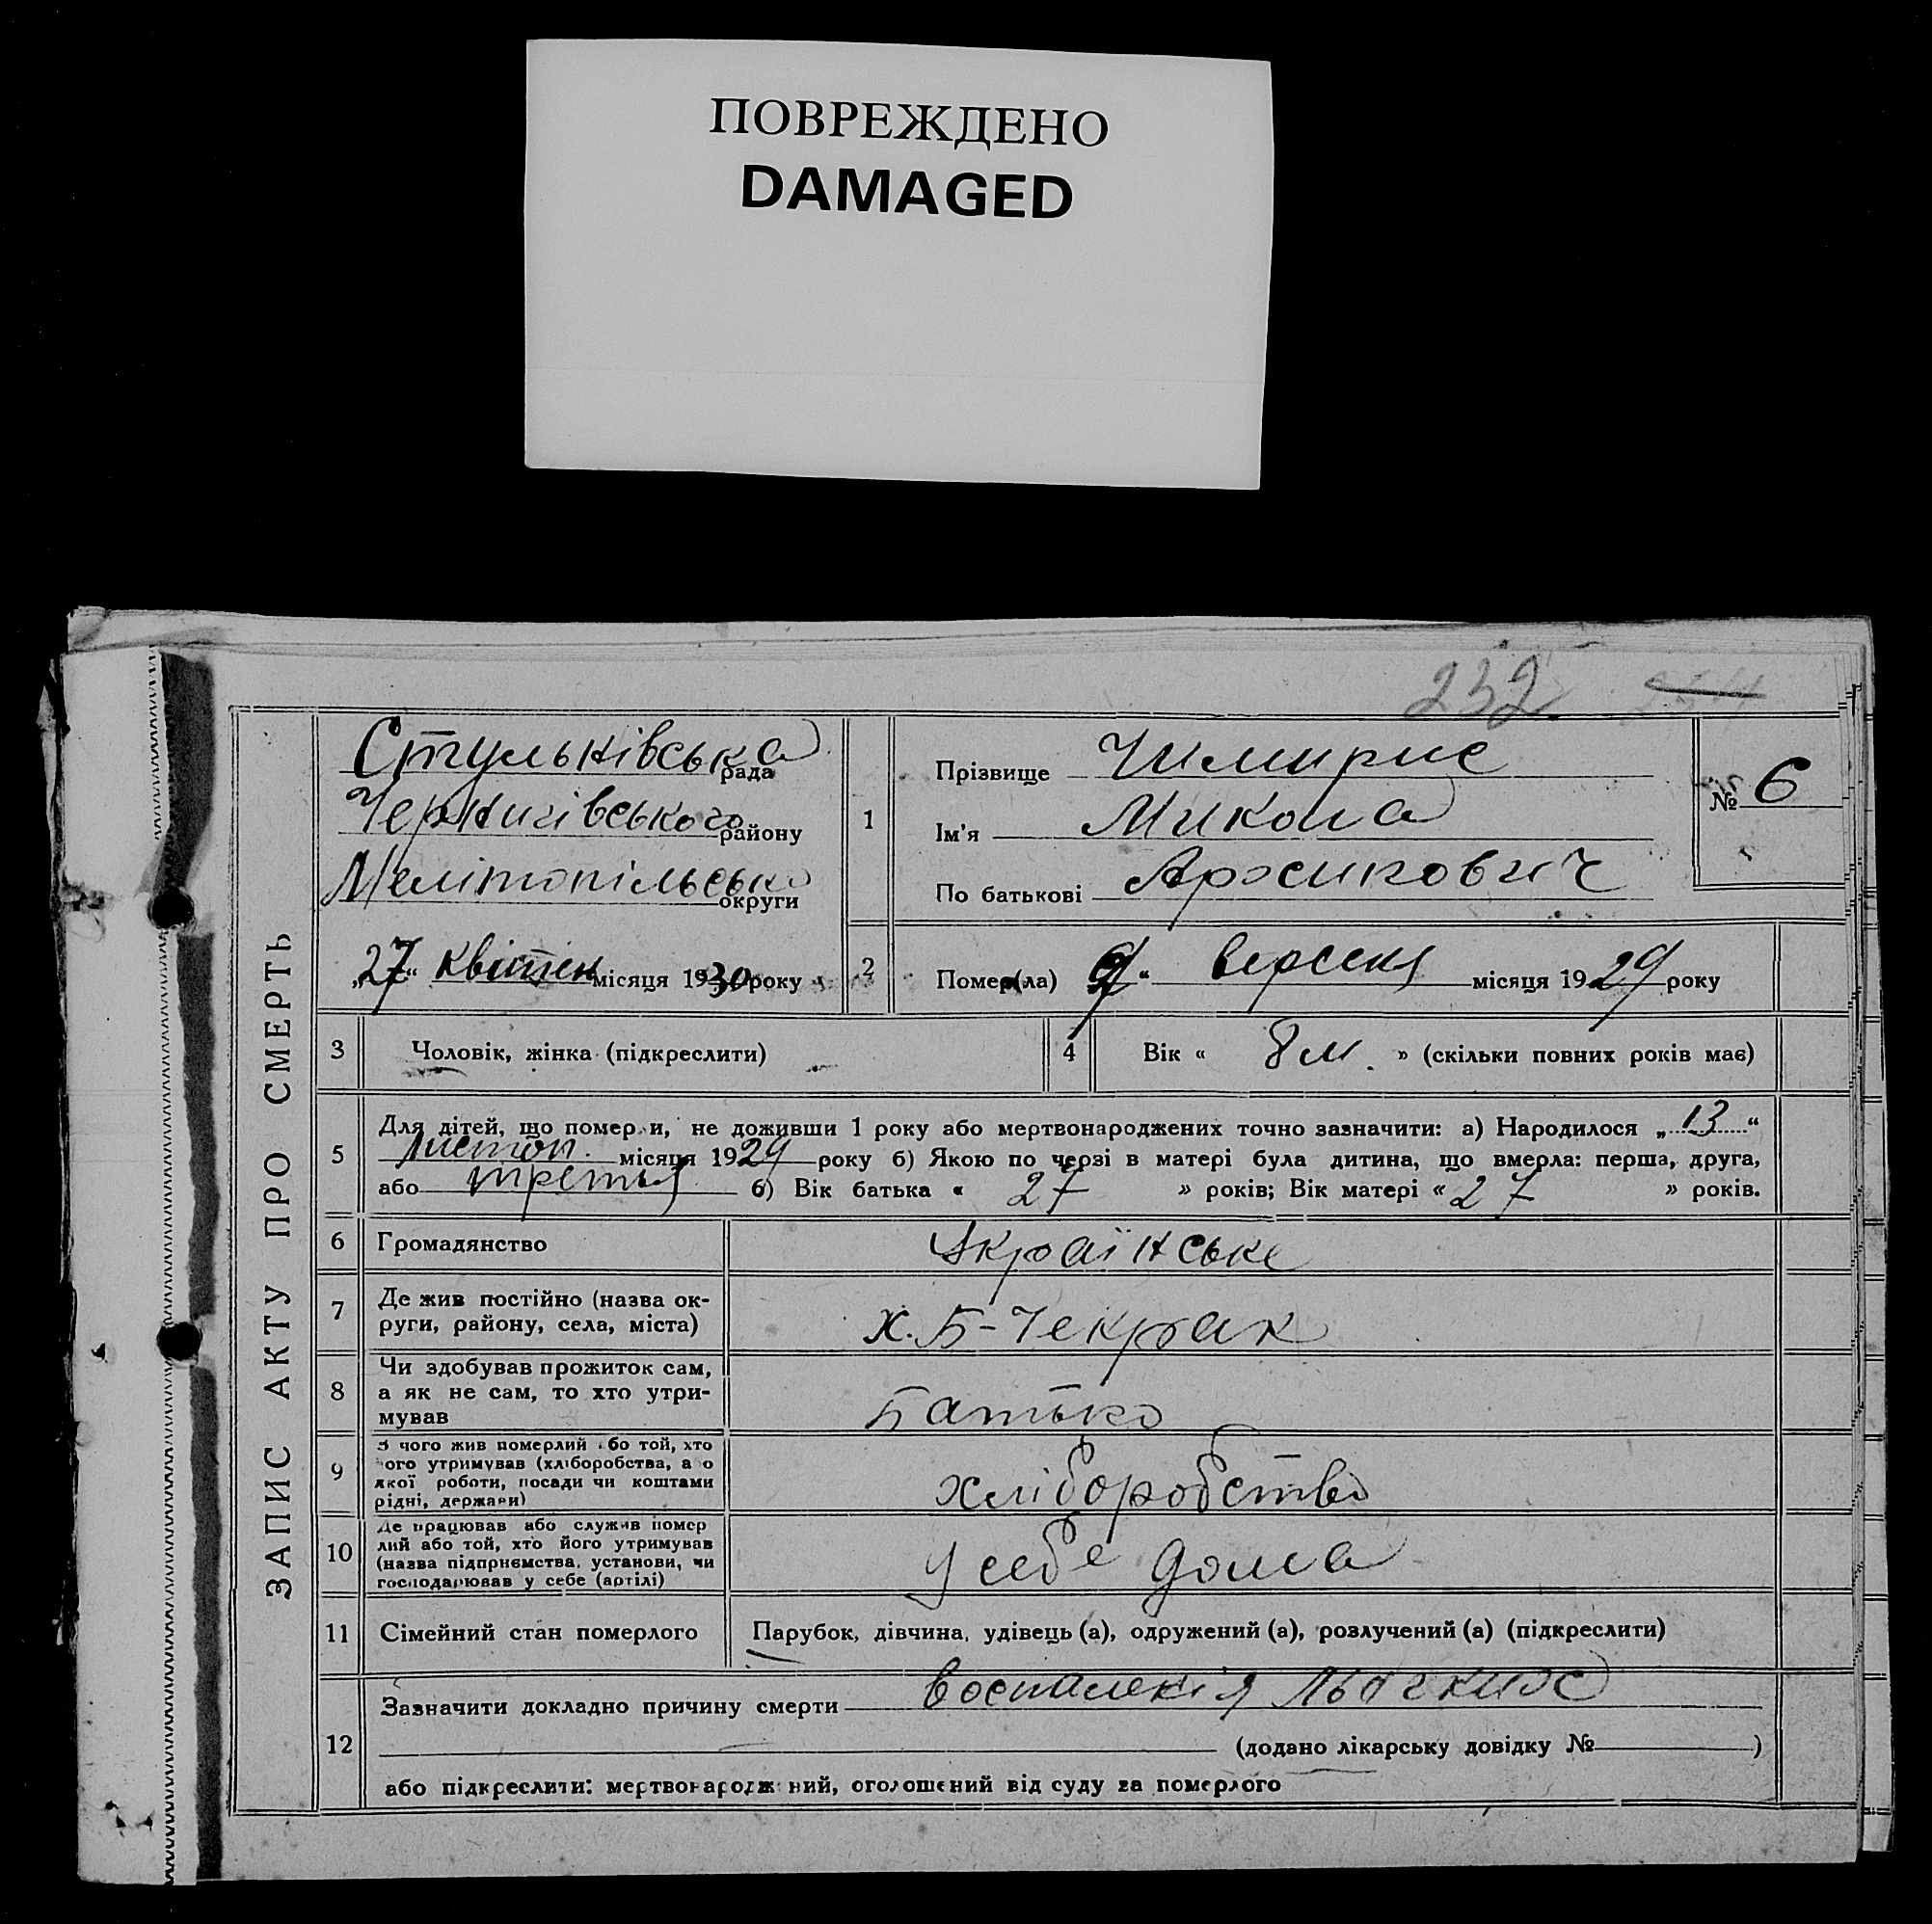 ПОВРЕЖДЕНО
DAMAGED
232
ЗАПИС АКТУ ПРО СМЕРТЬ
Стульнівська рада
Чернигівського району
Мелітопільсько округи
„27“ квітен місяця 1930 року
1
Прізвище Чимирис
Ім'я Микола
По батькові Архипович
№ 6
2
Помер(ла) 9“ вересня місяця 1929 року
3
Чоловік, жінка (підкреслити)
4
Вік « 8 м. » (скільки повних років має)
5
Для дітей, що померли, не доживши 1 року або мертвонароджених точно зазначити: а) Народилося „13“
листоп. місяця 1929 року б) Якою по черзі в матері була дитина, що вмерла: перша, друга,
або третья в) Вік батька « 27 » років; Вік матері « 27 » років.
6
Громадянство
Українське
7
Де жив постійно (назва ок-
руги, району, села, міста)
х. Б-Чекрак
8
Чи здобував прожиток сам,
а як не сам, то хто утри-
мував
Батько
9
З чого жив померлий або той, хто
його утримував (хліборобства, а о
якої роботи, посади чи коштами
рідні, держави)
хліборобство
10
Де працював або служив помер
лий або той, хто його утримував
(назва підприємства, установи, чи
господарював у себе (артілі)
у себе дома
11
Сімейний стан померлого
Парубок, дівчина, удівець (а), одружений (а), розлучений (а) (підкреслити)
12
Зазначити докладно причину смерти воспаленія льогких
(додано лікарську довідку № )
або підкреслити: мертвонароджений, оголошений від суду за померлого